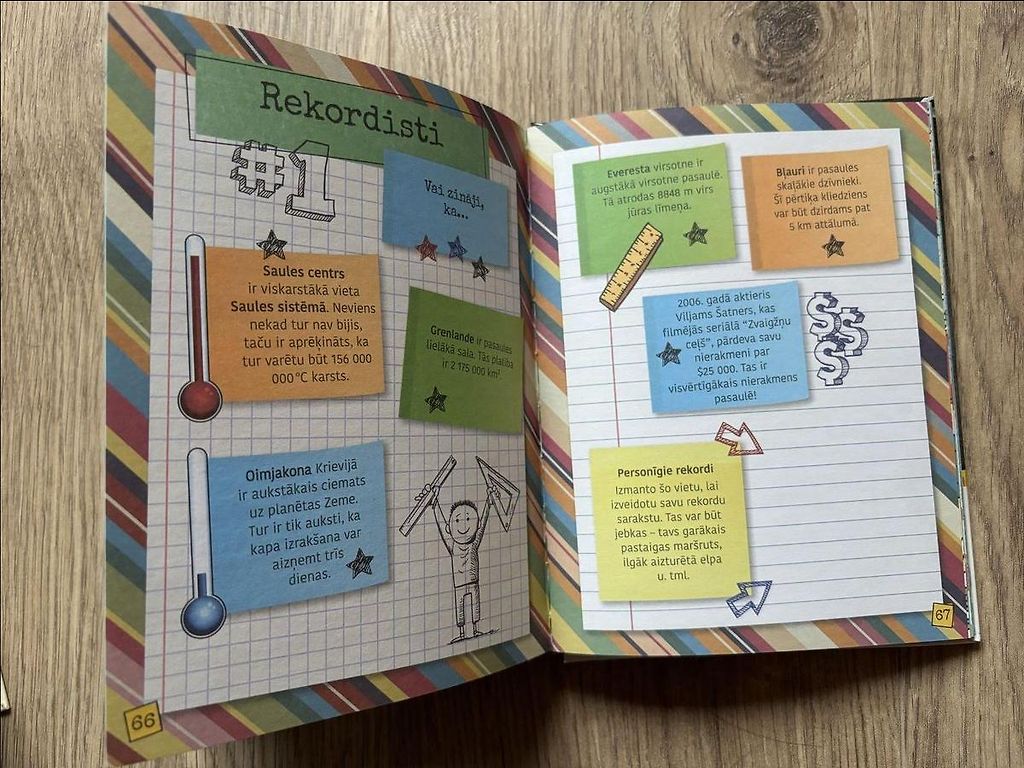 Rekordisti
#1
Vai zināji,
ka...
Saules centrs
ir viskarstākā vieta
Saules sistēmā. Neviens
nekad tur nav bijis,
taču ir aprēķināts, ka
tur varētu būt 156 000
000°C karsts.
Grenlande ir pasaules
lielākā sala. Tās platība
ir 2 175 000 km²
Oimjakona Krievijā
ir aukstākais ciemats
uz planētas Zeme.
Tur ir tik auksti, ka
kapa izrakšana var
aizņemt trīs
dienas.
66
Everesta virsotne ir
augstākā virsotne pasaulē.
Tā atrodas 8848 m virs
jūras līmeņa.
Bļauri ir pasaules
skaļākie dzīvnieki.
Šī pērtiķa kliedziens
var būt dzirdams pat
5 km attālumā.
2006. gadā aktieris
Viljams Šatners, kas
filmējās seriālā “Zvaigžņu
ceļš”, pārdeva savu
nierakmeni par
$25 000. Tas ir
visvērtīgākais nierakmens
pasaulē!
$$$
Personīgie rekordi
Izmanto šo vietu, lai
izveidotu savu rekordu
sarakstu. Tas var būt
jebkas – tavs garākais
pastaigas maršruts,
ilgāk aizturētā elpa
u. tml.
67